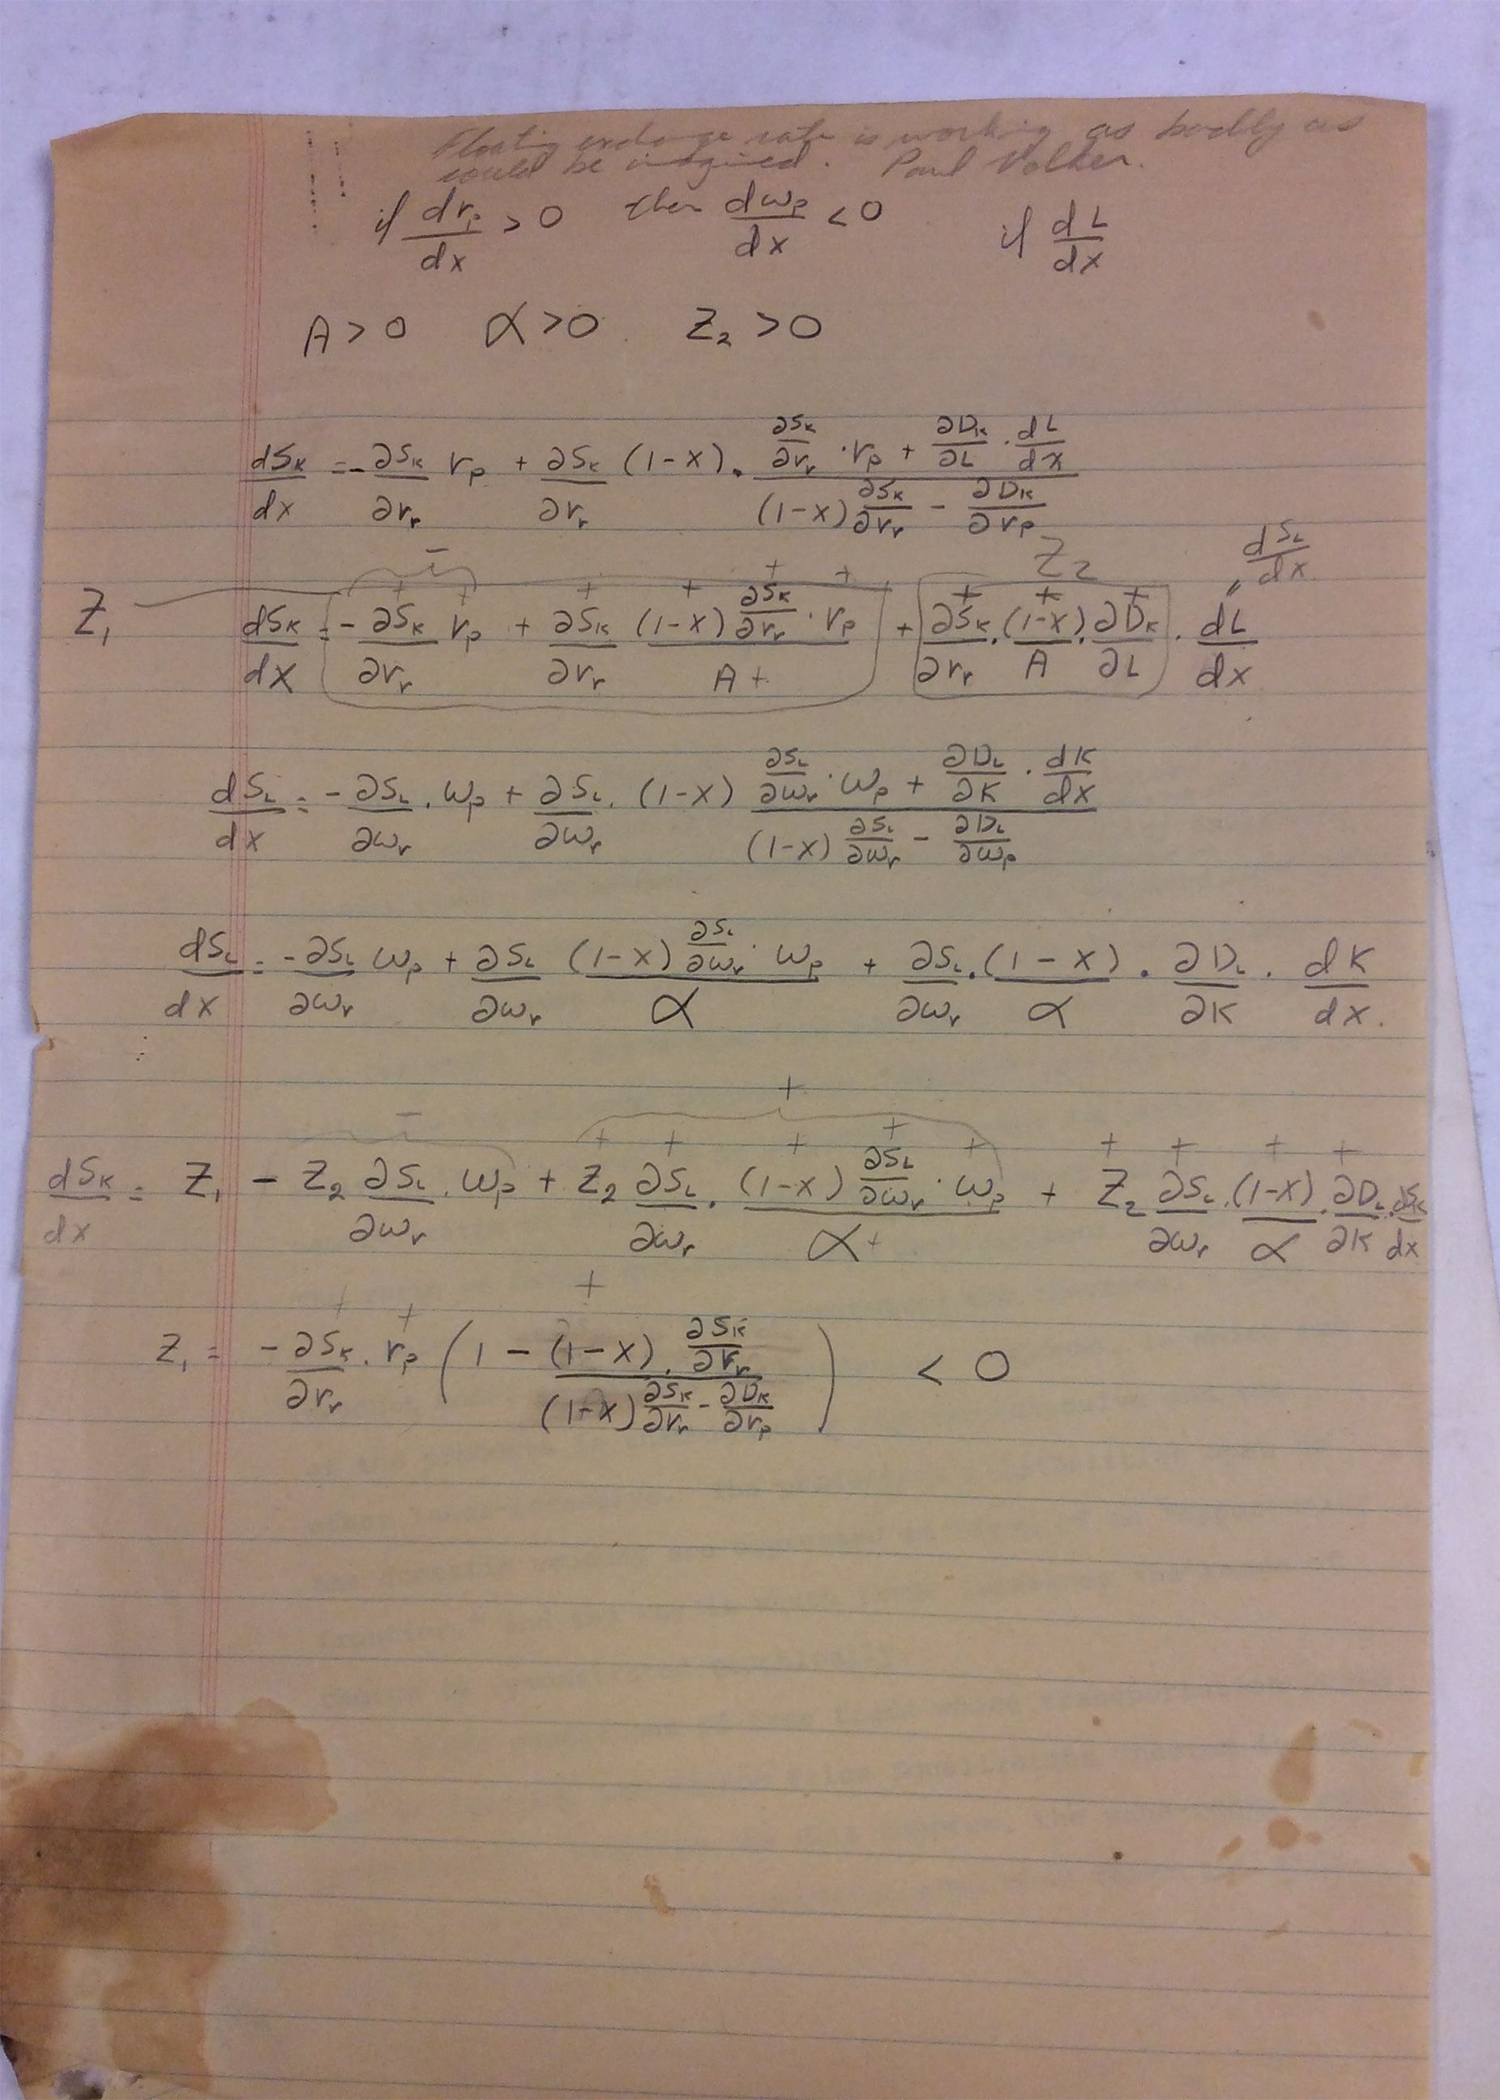 Floating exchange rate is working as badly as
could be imagined. Paul Volker.
if dr_p/dx > 0 then dω_p/dx < 0 if dL/dx
A > 0 α > 0 Z₂ > 0
dS_K/dx = -∂S_K/∂r_r r_p + ∂S_K/∂r_r (1-x) · (∂S_K/∂r_r · r_p + ∂D_K/∂L · dL/dx) / ((1-x) ∂S_K/∂r_r - ∂D_K/∂r_p)
- + + + + + + Z₂ + + + dS_L/dx
Z₁ dS_K/dx = -∂S_K/∂r_r r_p + ∂S_K/∂r_r (1-x) ∂S_K/∂r_r · r_p / A + + ∂S_K/∂r_r · (1-x)/A · ∂D_K/∂L · dL/dx
dS_L/dx = -∂S_L/∂ω_r · ω_p + ∂S_L/∂ω_r · (1-x) (∂S_L/∂ω_r · ω_p + ∂D_L/∂K · dK/dx) / ((1-x) ∂S_L/∂ω_r - ∂D_L/∂ω_p)
dS_L/dx = -∂S_L/∂ω_r ω_p + ∂S_L/∂ω_r (1-x) ∂S_L/∂ω_r · ω_p / α + ∂S_L/∂ω_r · (1-x)/α · ∂D_L/∂K · dK/dx.
- +
+ + + + + + + + +
dS_K/dx = Z₁ - Z₂ ∂S_L/∂ω_r · ω_p + Z₂ ∂S_L/∂ω_r · (1-x) ∂S_L/∂ω_r · ω_p / α + + Z₂ ∂S_L/∂ω_r · (1-x)/α · ∂D_L/∂K · dS_K/dx
+ + +
Z₁ = -∂S_K/∂r_r · r_p (1 - (1-x) · ∂S_K/∂r_r / ((1-x) ∂S_K/∂r_r - ∂D_K/∂r_p)) < 0